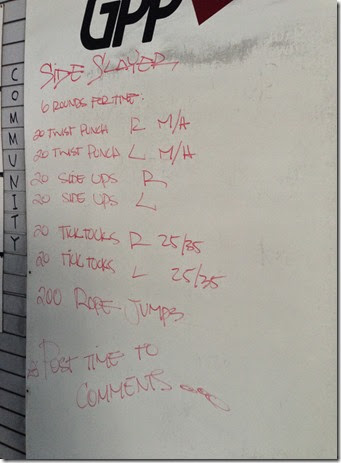 GPP
COMMUNITY
SIDE SLAYER
6 ROUNDS FOR TIME:
20 TWIST PUNCH R M/H
20 TWIST PUNCH L M/H
20 SIDE UPS R
20 SIDE UPS L
20 TICKTOCKS R 25/35
20 TICKTOCKS L 25/35
200 ROPE JUMPS
POST TIME TO
COMMENTS...